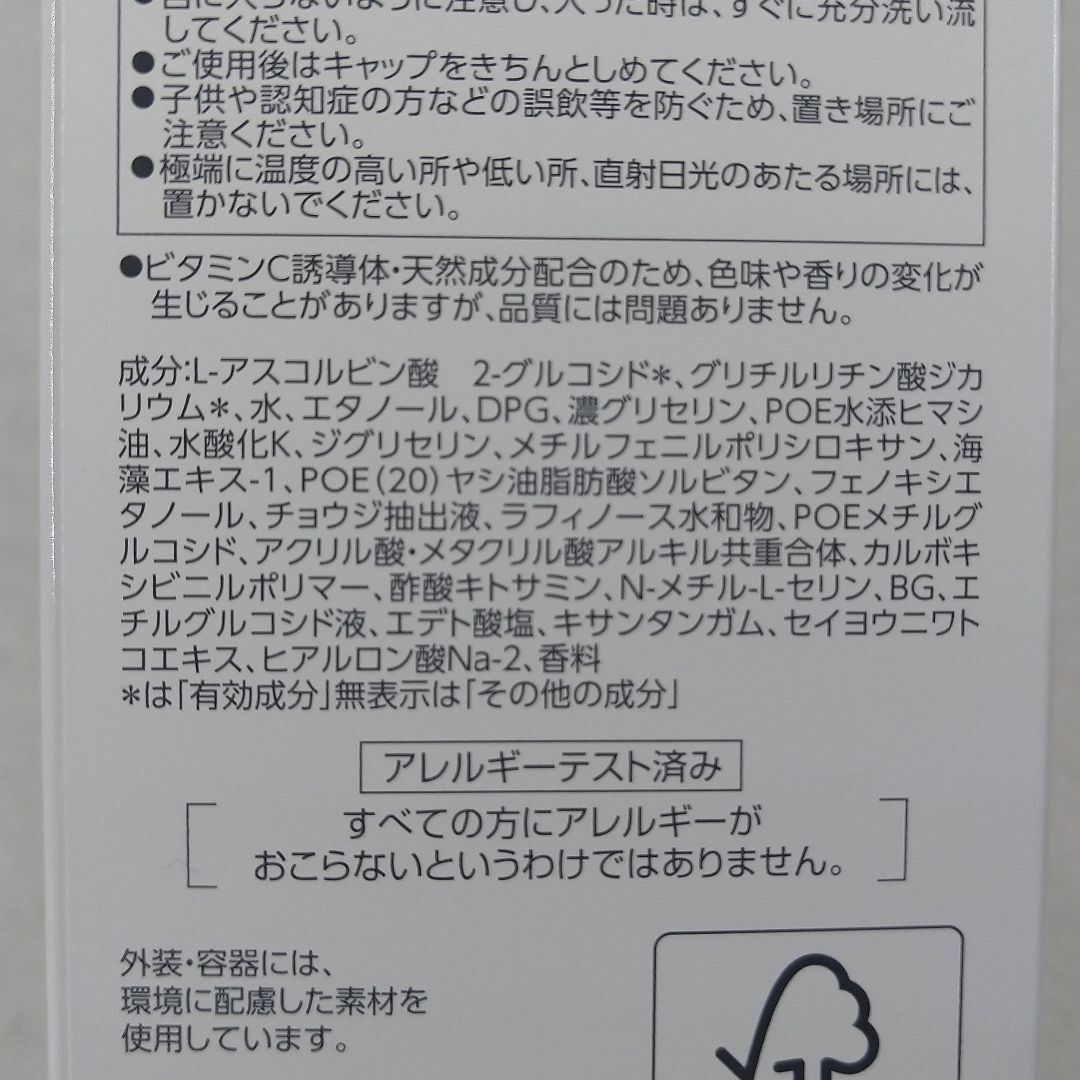 ●目に入らないように注意し、入った時は、すぐに充分洗い流
してください。
●ご使用後はキャップをきちんとしめてください。
●子供や認知症の方などの誤飲等を防ぐため、置き場所にご
注意ください。
●極端に温度の高い所や低い所、直射日光のあたる場所には、
置かないでください。
●ビタミンC誘導体・天然成分配合のため、色味や香りの変化が
生じることがありますが、品質には問題ありません。
成分:L-アスコルビン酸　2-グルコシド＊、グリチルリチン酸ジカ
リウム＊、水、エタノール、DPG、濃グリセリン、POE水添ヒマシ
油、水酸化K、ジグリセリン、メチルフェニルポリシロキサン、海
藻エキス-1、POE(20)ヤシ油脂肪酸ソルビタン、フェノキシエ
タノール、チョウジ抽出液、ラフィノース水和物、POEメチルグ
ルコシド、アクリル酸・メタクリル酸アルキル共重合体、カルボキ
シビニルポリマー、酢酸キトサミン、N-メチル-L-セリン、BG、エ
チルグルコシド液、エデト酸塩、キサンタンガム、セイヨウニワト
コエキス、ヒアルロン酸Na-2、香料
＊は「有効成分」無表示は「その他の成分」
アレルギーテスト済み
すべての方にアレルギーが
おこらないというわけではありません。
外装・容器には、
環境に配慮した素材を
使用しています。